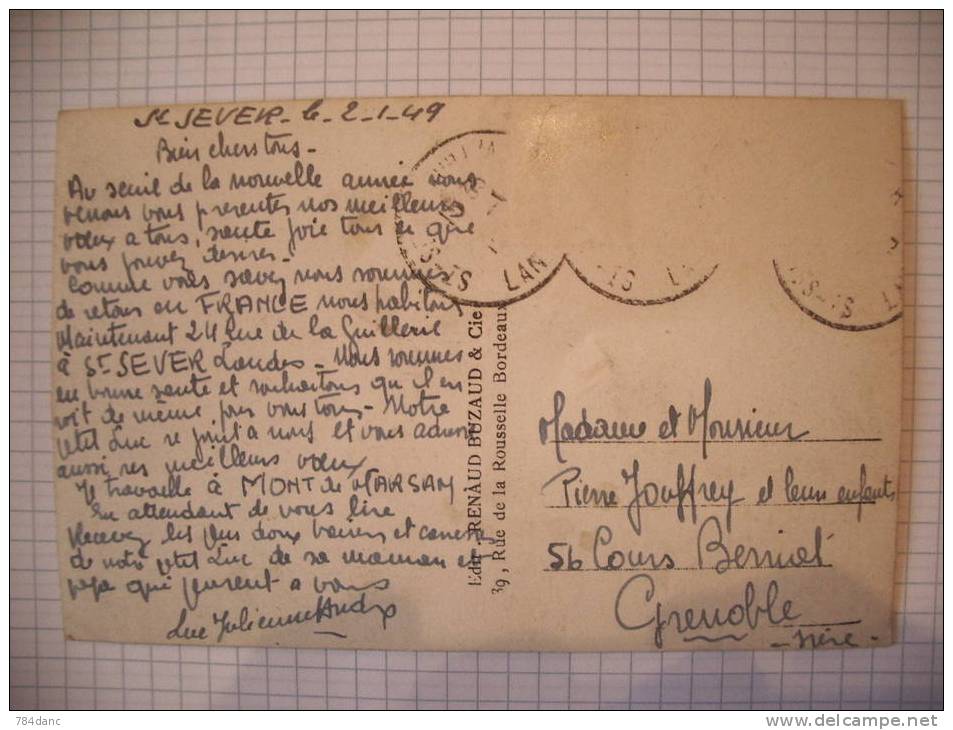 St SEVER le 2-1-49
Bien chers tous -
Au seuil de la nouvelle année nous
venons vous presenter nos meilleurs
vœux a tous, sante joie tous ce que
vous pouvez desirer -
Comme vous savez nous sommes
de retour en FRANCE nous habitons
Maintenant 24 Rue de la Guillerie
à St SEVER Landes - Nous sommes
en bonne sante et souhaitons qu'il en
soit de même pour vous tous - Notre
petit Luc se joint a nous et vous adresse
aussi ses meilleurs vœux
Je travaille à MONT de MARSAN
En attendant de vous lire
Recevez les plus doux baisers et caresses
de notre petit Luc de sa maman et
papa qui pensent a vous
Luc Julienne Andre
Edit. RENAUD BUZAUD & Cie
39, Rue de la Rousselle Bordeaux
ST-S
LAN
ST-S
LA
ST-S
Madame et Monsieur
Pierre Jouffrey et leurs enfants
56 Cours Berriat
Grenoble
- Isère -
784danc
www.delcampe.net